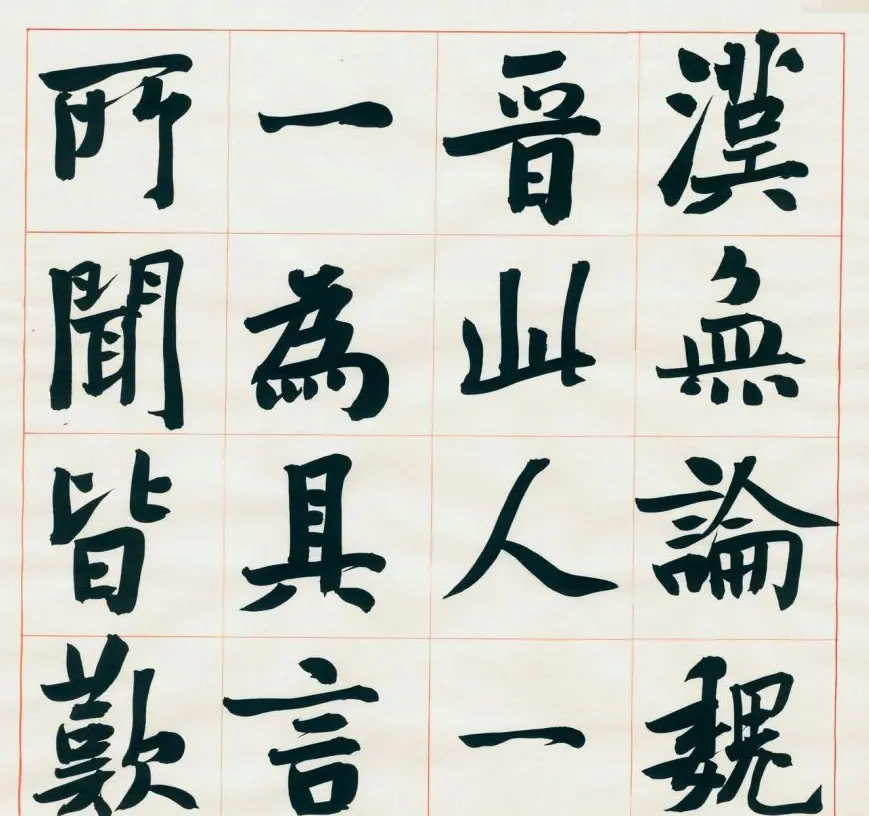 漢無論魏
晋此人一
一為具言
所聞皆歎